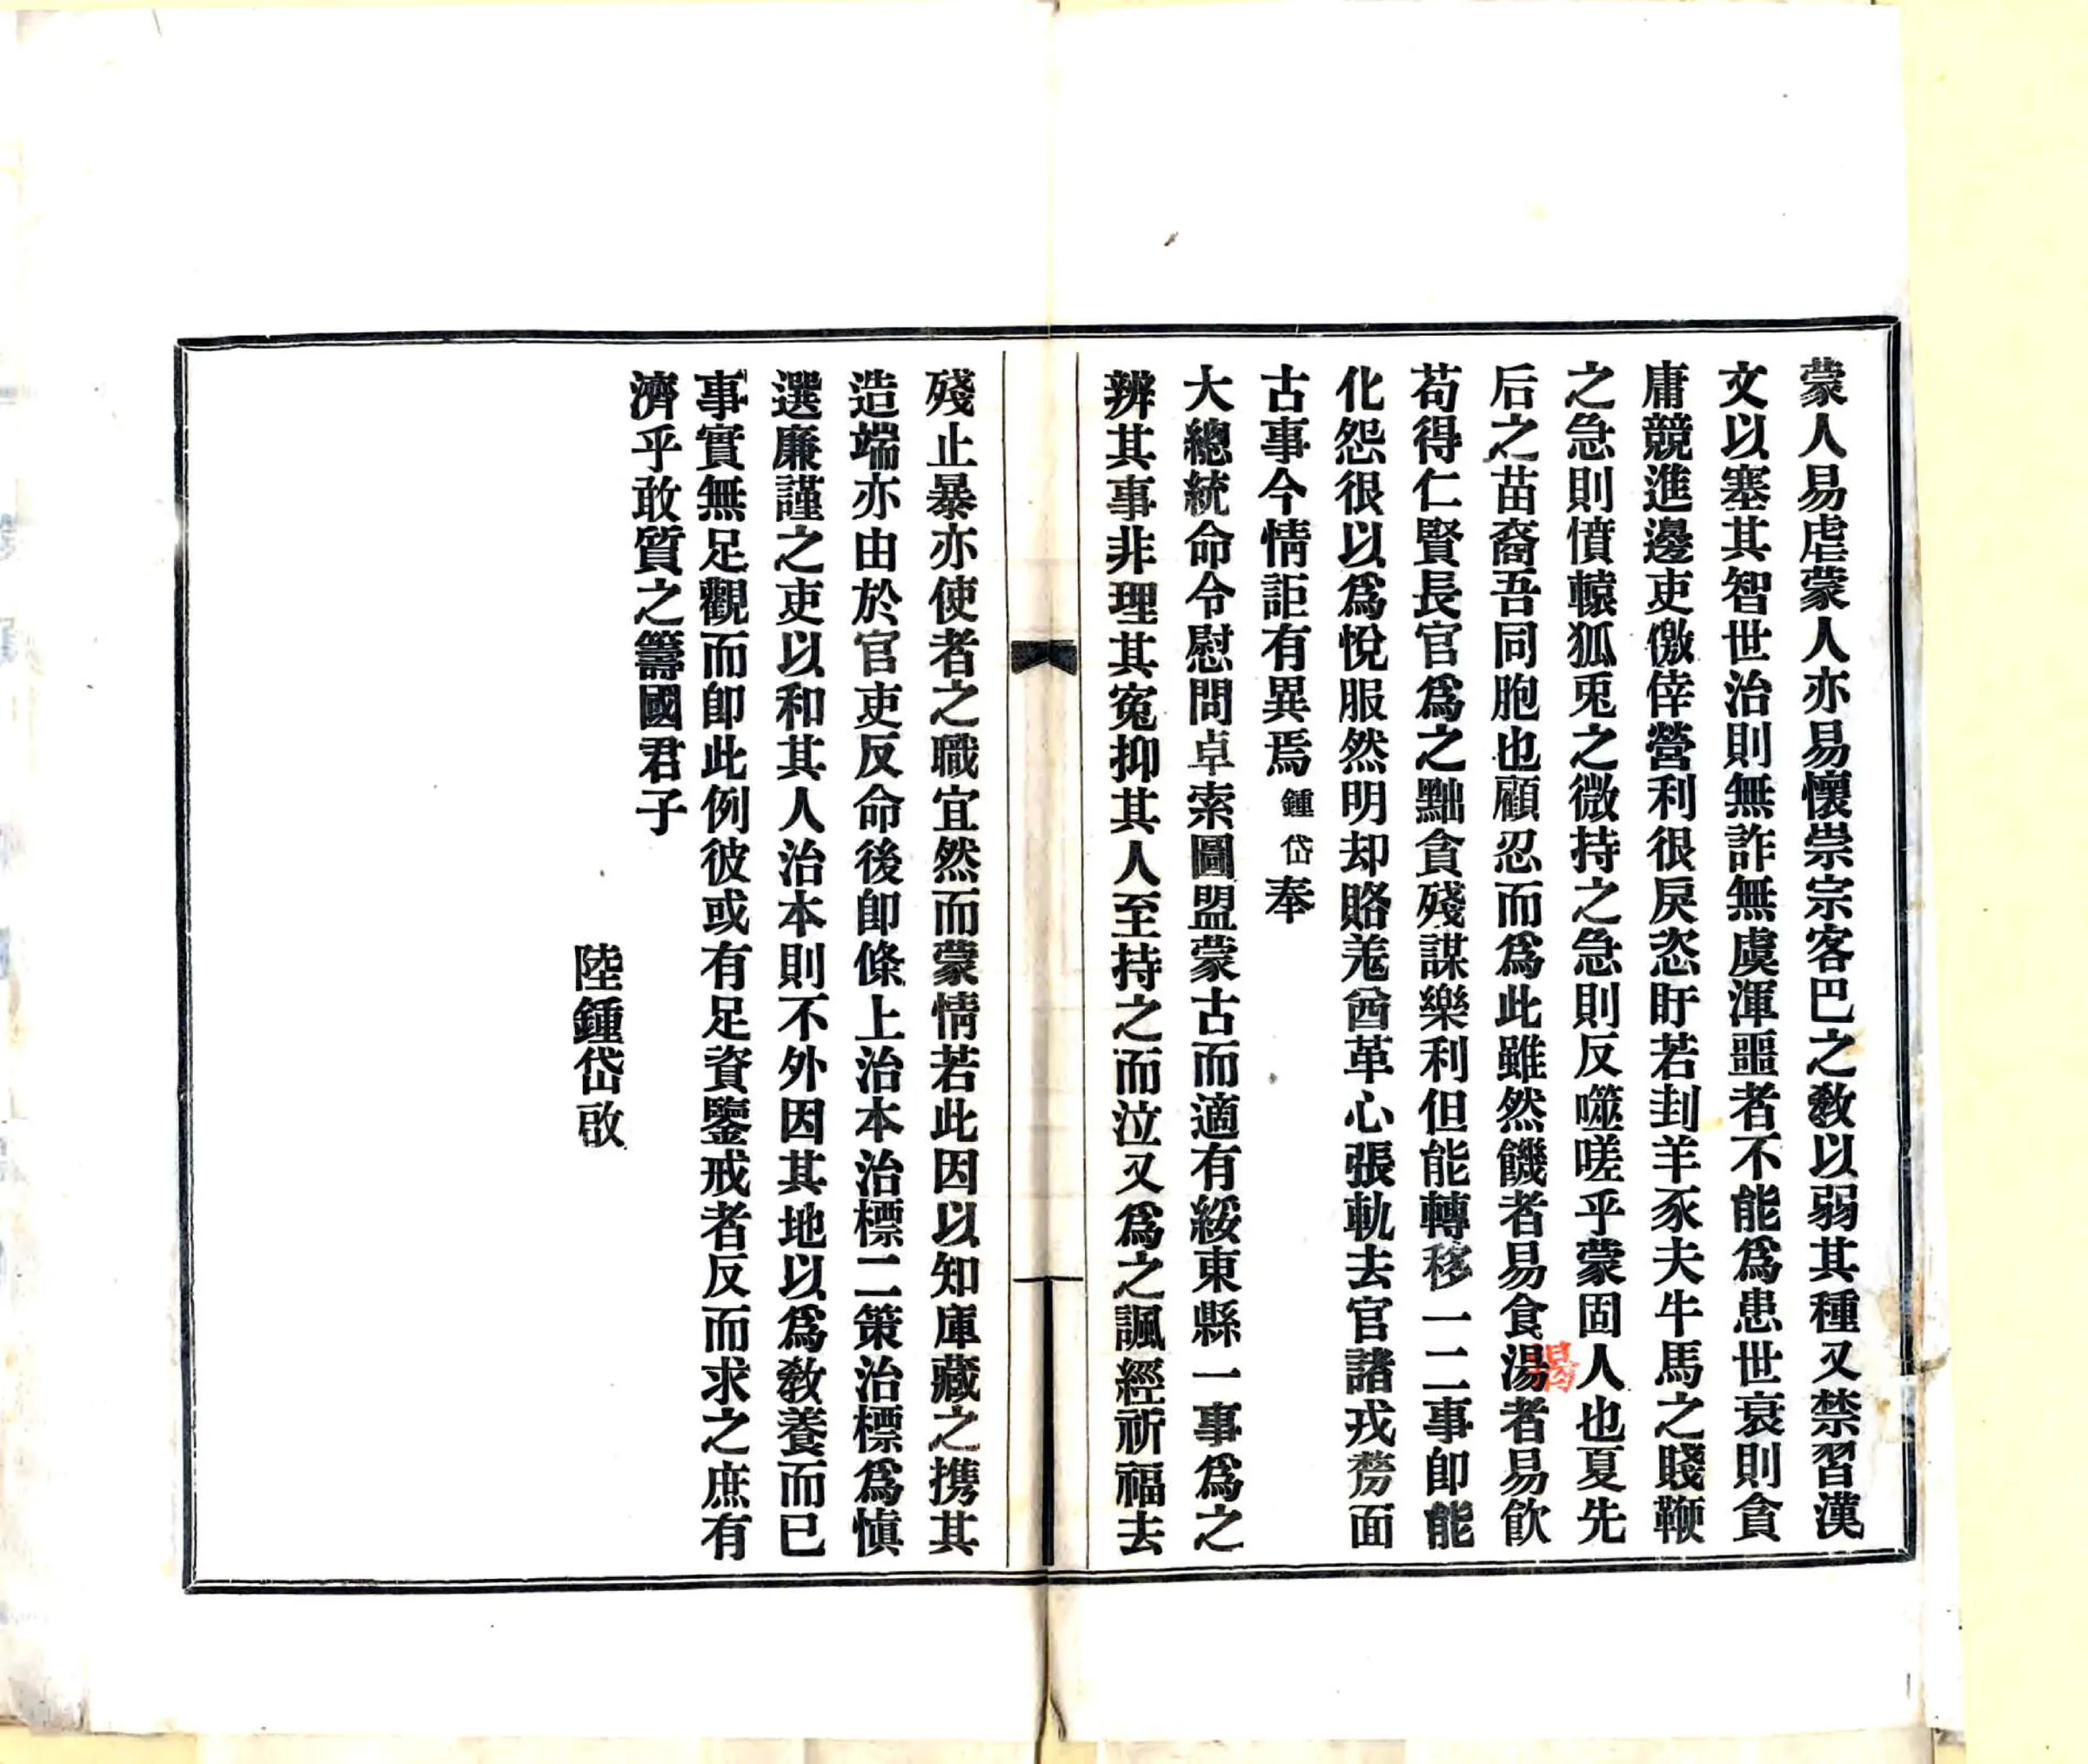 蒙人易虐蒙人亦易懷崇宗客巴之教以弱其種又禁習漢
文以塞其智世治則無詐無虞渾噩者不能爲患世衰則貪
庸競進邊吏儌倖營利很戾恣盱若刲羊豕夫牛馬之賤鞭
之急則僨轅狐兎之微持之急則反噬嗟乎蒙固人也夏先
后之苗裔吾同胞也顧忍而爲此雖然饑者易食湯者易飲
渴
苟得仁賢長官爲之黜貪殘謀樂利但能轉移一二事卽能
化怨很以爲悅服然明却賂羌酋革心張軌去官諸戎剺面
古事今情詎有異焉鍾岱奉
大總統命令慰問卓索圖盟蒙古而適有綏東縣一事爲之
辨其事非理其寃抑其人至持之而泣又爲之諷經祈福去
殘止暴亦使者之職宜然而蒙情若此因以知庫藏之携其
造端亦由於官吏反命後卽條上治本治標二策治標爲愼
選廉謹之吏以和其人治本則不外因其地以爲教養而已
事實無足觀而卽此例彼或有足資鑒戒者反而求之庶有
濟乎敢質之籌國君子
陸鍾岱啟